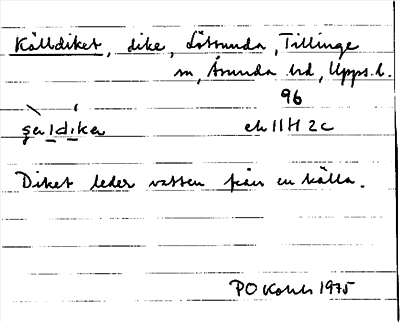 Källdiket, dike, Lötsunda, Tillinge
sn, Åsunda hd, Upps. l.
96
ek 11H 2c
Diket leder vatten från en källa.
1975